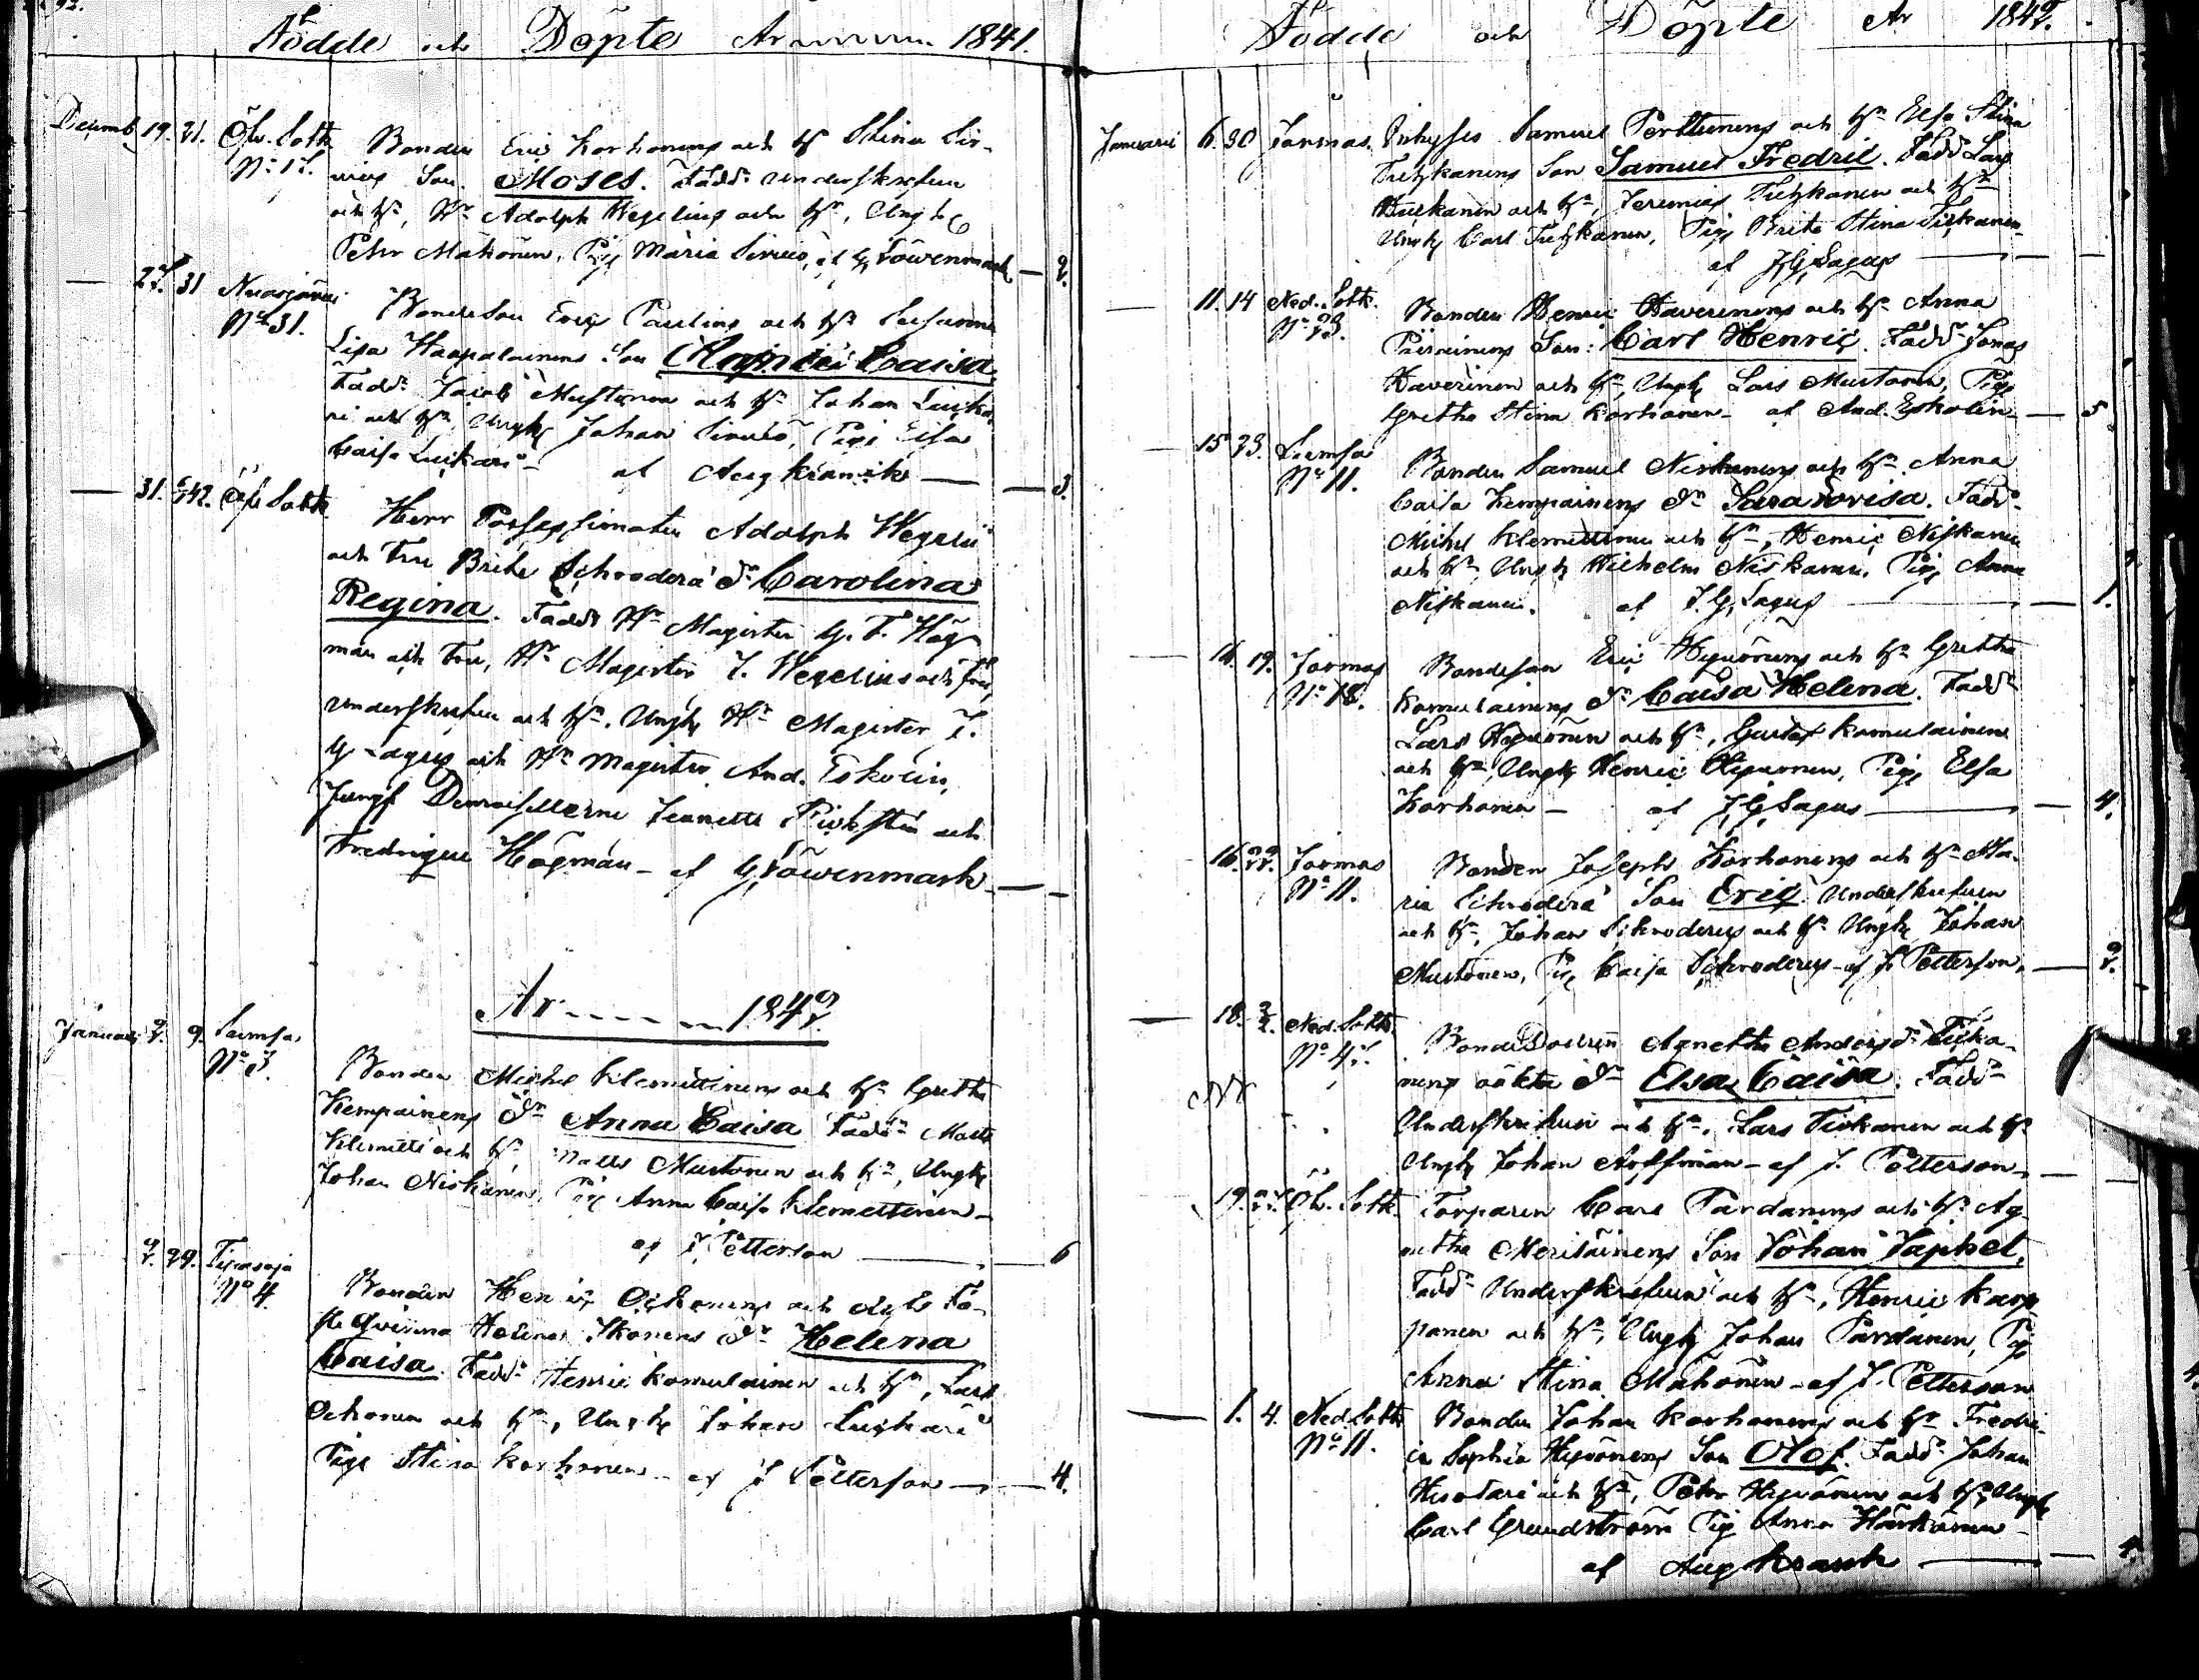 Födde och Döpte År 1841.
Decemb. 19. 21. Öfv. Sotk. Bonden Eric Korhonens och h. Stina Sir-
N:o 12. nius Son. Moses. Fadd: underskrefven
och h:u, H:r Adolph Wegelius och h:u, Ungk
Petter Mähönen, Pig Maria Sirviö, af G Löwenmark — 2.
— 27. 31 Nuasjärvi Bondeson Eric Paulins och h:u Susanna
N:o 31. Lisa Haapalainens
Caisa
Fadd: Jacob Mustonen och h:u Johan Luika-
ri och h:u, Ungk Johan Sirviö, Pig Elsa
Caisa Luikari — af Aug Kranck — 3.
— 31. 42. Öfv Sotk. Herr Possessionaten Adolph Wegelii
och Fru Brita Schroderi D:r Carolina
Regina. Fadd: H:r Magister G. F. Häg-
man och Fru, H:r Magister J. Wegelius och Fru,
underskrefven och h:u. Ungk H:r Magister J.
G Lagus och H:r Magister And. Eskolin,
Jungf Demoisellerne Jeanette och
Fredrique Högman — af G, Löwenmark — —
År 1842.
Januari 2. 9. Bonden Michel Klemettinens och h:u Greta
N:o 3. Kempainens D:r Anna Caisa Fadd: Matts
Klemetti och h:u, Matts Mustonen och h:u, Ungk
Johan Niskanen, Pig Anna Caisa Klemettinen —
af J. Petterson — 6
2. 29. Tipasoja Bonden Henric Ockonens och dess Fä-
N:o 4. steqvinna Helena Ikonens D:r Helena
Caisa. Fadd: Henric Komulainen och h:u, Lars
Ockonen och h:u, Ungk Johan Luikari
Pige Stina Korhonen — af J Petterson — 4.
Födde och Döpte År 1842.
Januarii 6. 30 Jormas Inhyses Samuel Perttunens och h:u Elsa Stina
Tietzkanens Son Samuel Fredric. Fadd Lars
och h:u, Jeremias Tietzkanen och h:u
Ungk Carl Tietzkanen, Pig Brita Stina Tiskanen
af J,G, Lagus — —
— 11. 14 Ned. Sotk. Bonden Henric Kaverinens och h:u Anna
N:o 23. Piirainens Son: Carl Henric. Fadd: Jonas
Kaverinen och h:u, Ungk Lars Mustonen, Pig
Gretha Stina Korhonen — af And. Eskolin — 5
— 15 23. Bonden Samuel Niskanens och h:u Anna
N:o 11. Caisa Kempainens D:r Sara Lovisa. Fadd:
Michel Klemettinen och h:u, Henric Niskanen
och h:u, Ungk Wilhelm Niskanen, Pig Anna
Niskanen. af J. G, Lagus — 1.
— 16. 19. Jormas Bondeson Eric Hyvönens och h:u Gretha
N:o 18. Komulainens D:r Caisa Helena. Fadd:
Lars Hyvönen och h:u, Gustaf Komulainen
och h:u, Ungk Henric Hyvönen, Pig Elsa
Korhonen — af J,G, Lagus — 4.
16. 22. Jormas Bonden Joseph Korhonens och h:u Ma-
N:o 11. ria Schroderi Son Eric Underskrefven
och h:u, Johan Schroderus och h:u Ungk Johan
Mustonen, Pig Caisa Schroderus — af J. Petterson, — 2.
— 18. Ned. Sotk. Agnetha Anders D:r Tiska-
N:o 45. nens oäkta D:r Elsa Caisa. Fadd:
Underskrefven och h:u, Lars Tiskanen och h:u
Ungk Johan Hoffman — af J. Petterson —
19. Öfv. Sotk. Torparen Carl Pardanens och h:u Ag-
netha Meriläinens Son Johan Japhet,
Fadd: Underskrefven och h:u, Henric Karp-
panen och h:u, Ungk Johan Pardanen, Pig
Anna Stina Mähönen — af J. Petterson
— 1. 4. Ned. Sotk Bonden Johan Korhonens och h:u Fredri-
N:o 11. ca Sophia Hyvönens Son Olof. Fadd: Johan
och h:u, Petter Hyvönen och h:u, Ungk
Carl Grundström Pig Anna Härkönen —
af Aug Kranck — 4.